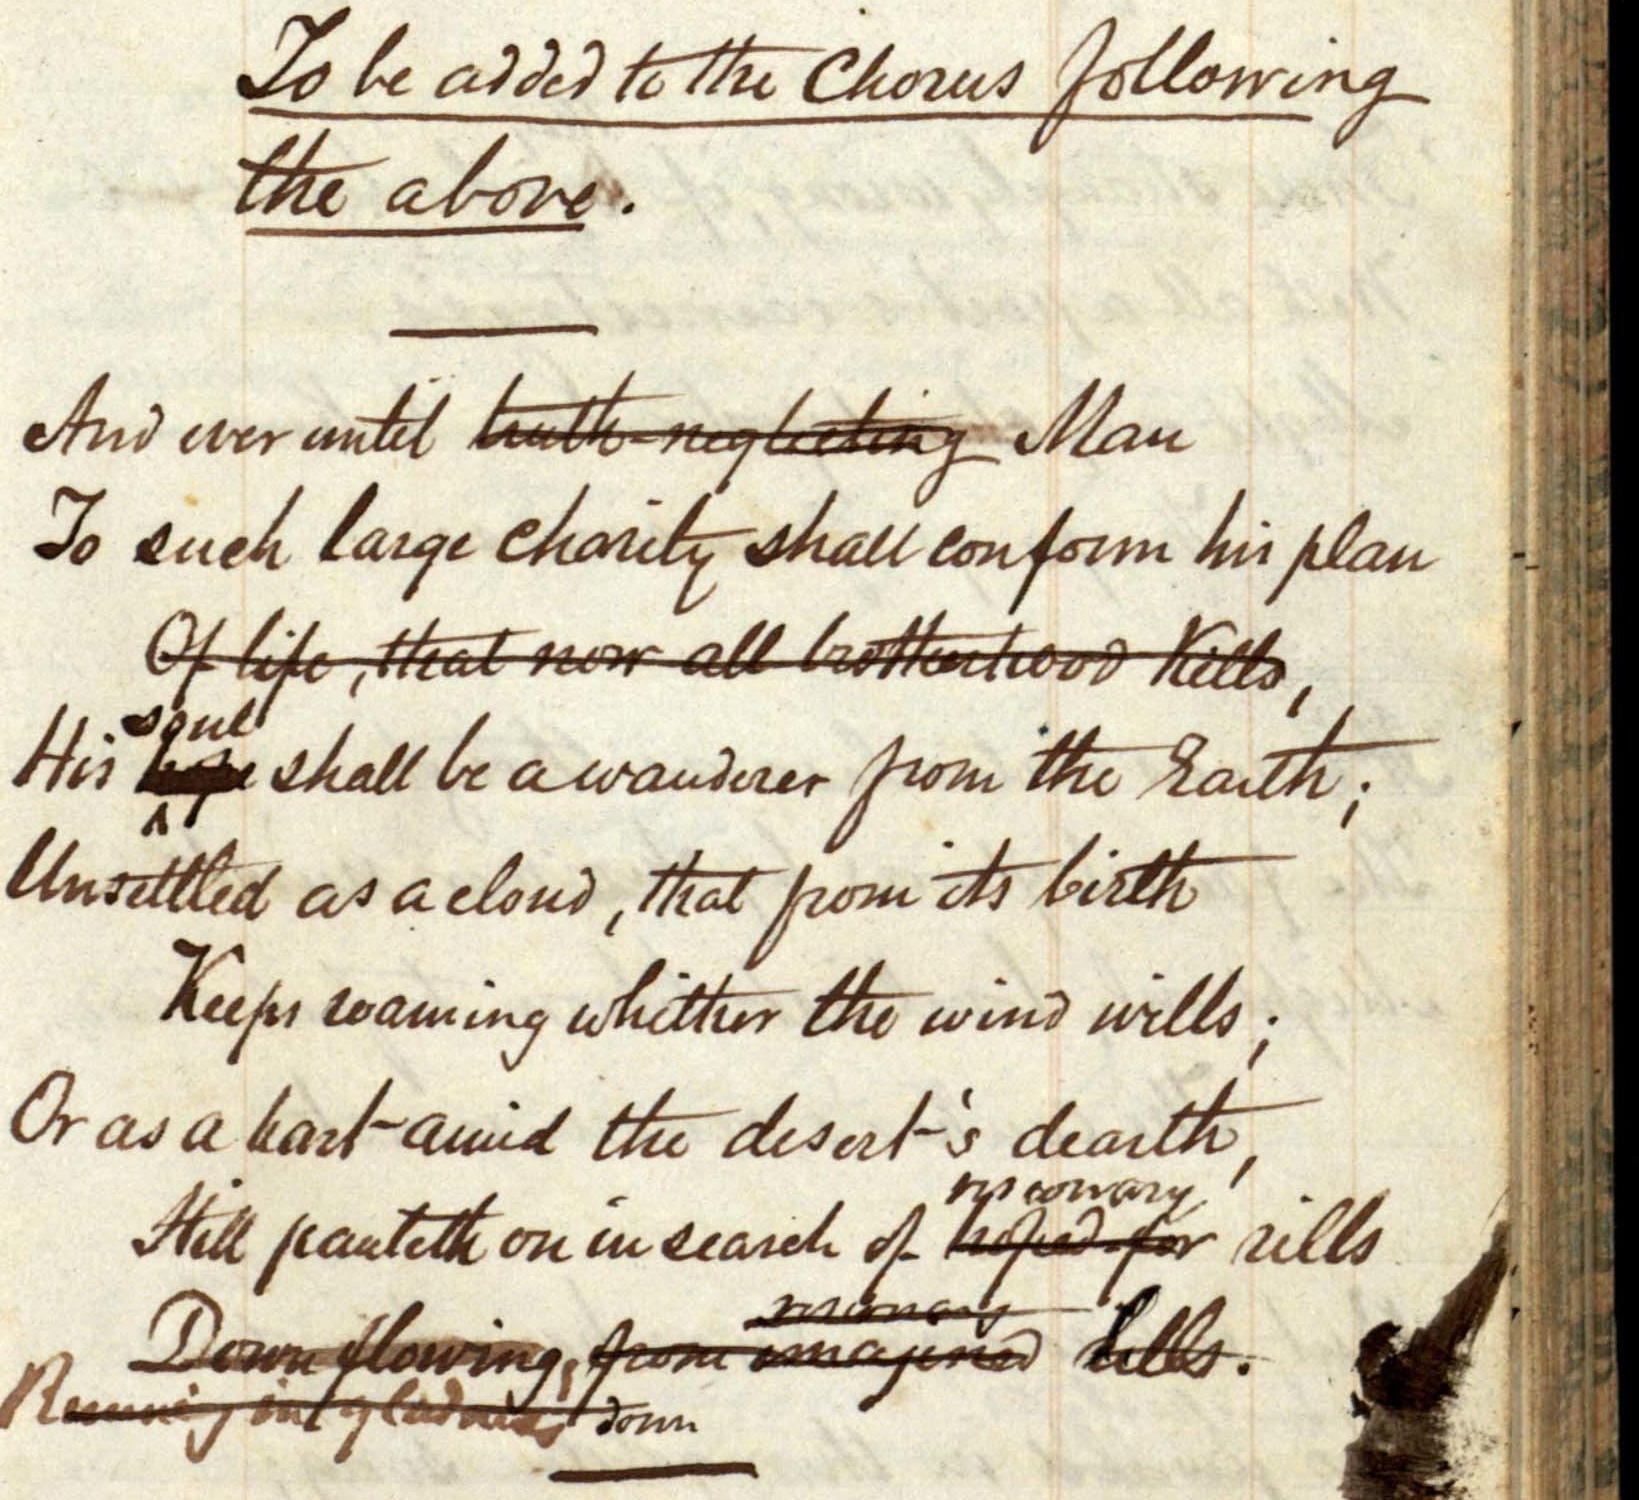 To be added to the Chorus following
the above.
And ever until truth-neglecting Man
To such large charity shall conform his plan
Of life, that now all brotherhood kills,
soul
His hope shall be a wanderer from the Earth;
Unsettled as a cloud, that from its birth
Keeps roaming whither the wind wills;
Or as a hart amid the desert's dearth,
visionary
Still panteth on in search of hoped-for rills
visionary
Down flowing, from imagined hills.
Running in gladness down